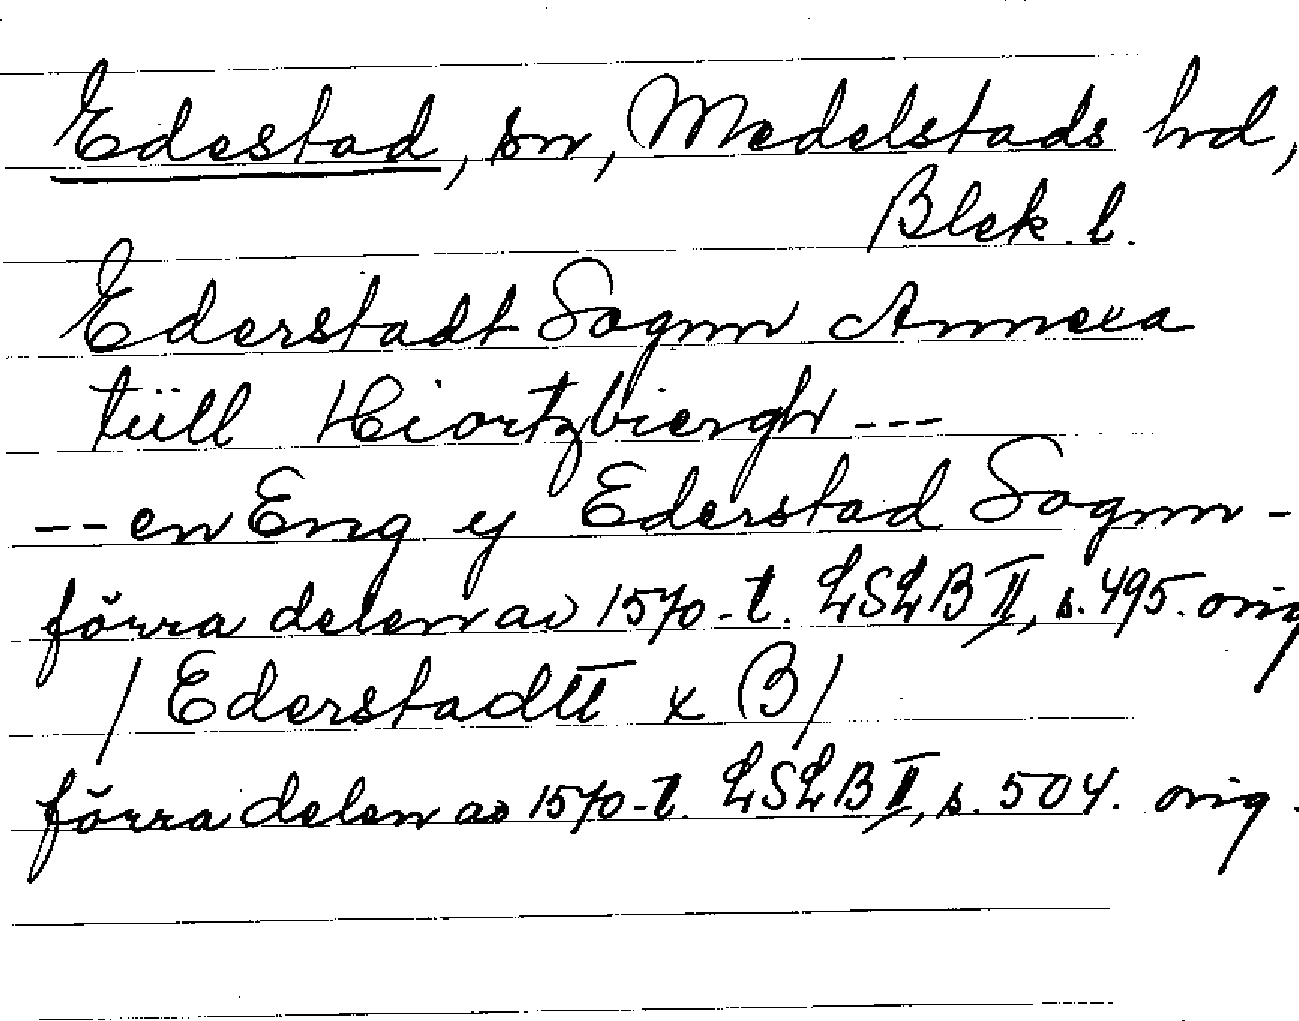 Edestad, sn, Medelstads hd,
Blek. l.
Ederstadt Sognn Annexa
tüll Hiortzbiergh ---
-- en Eng y Ederstad Sognn -
förra delen av 1570-t. LSLB II, s. 495. orig
/ Ederstadtt x B/
förra delen av 1570-t. LSLB II, s. 504. orig.